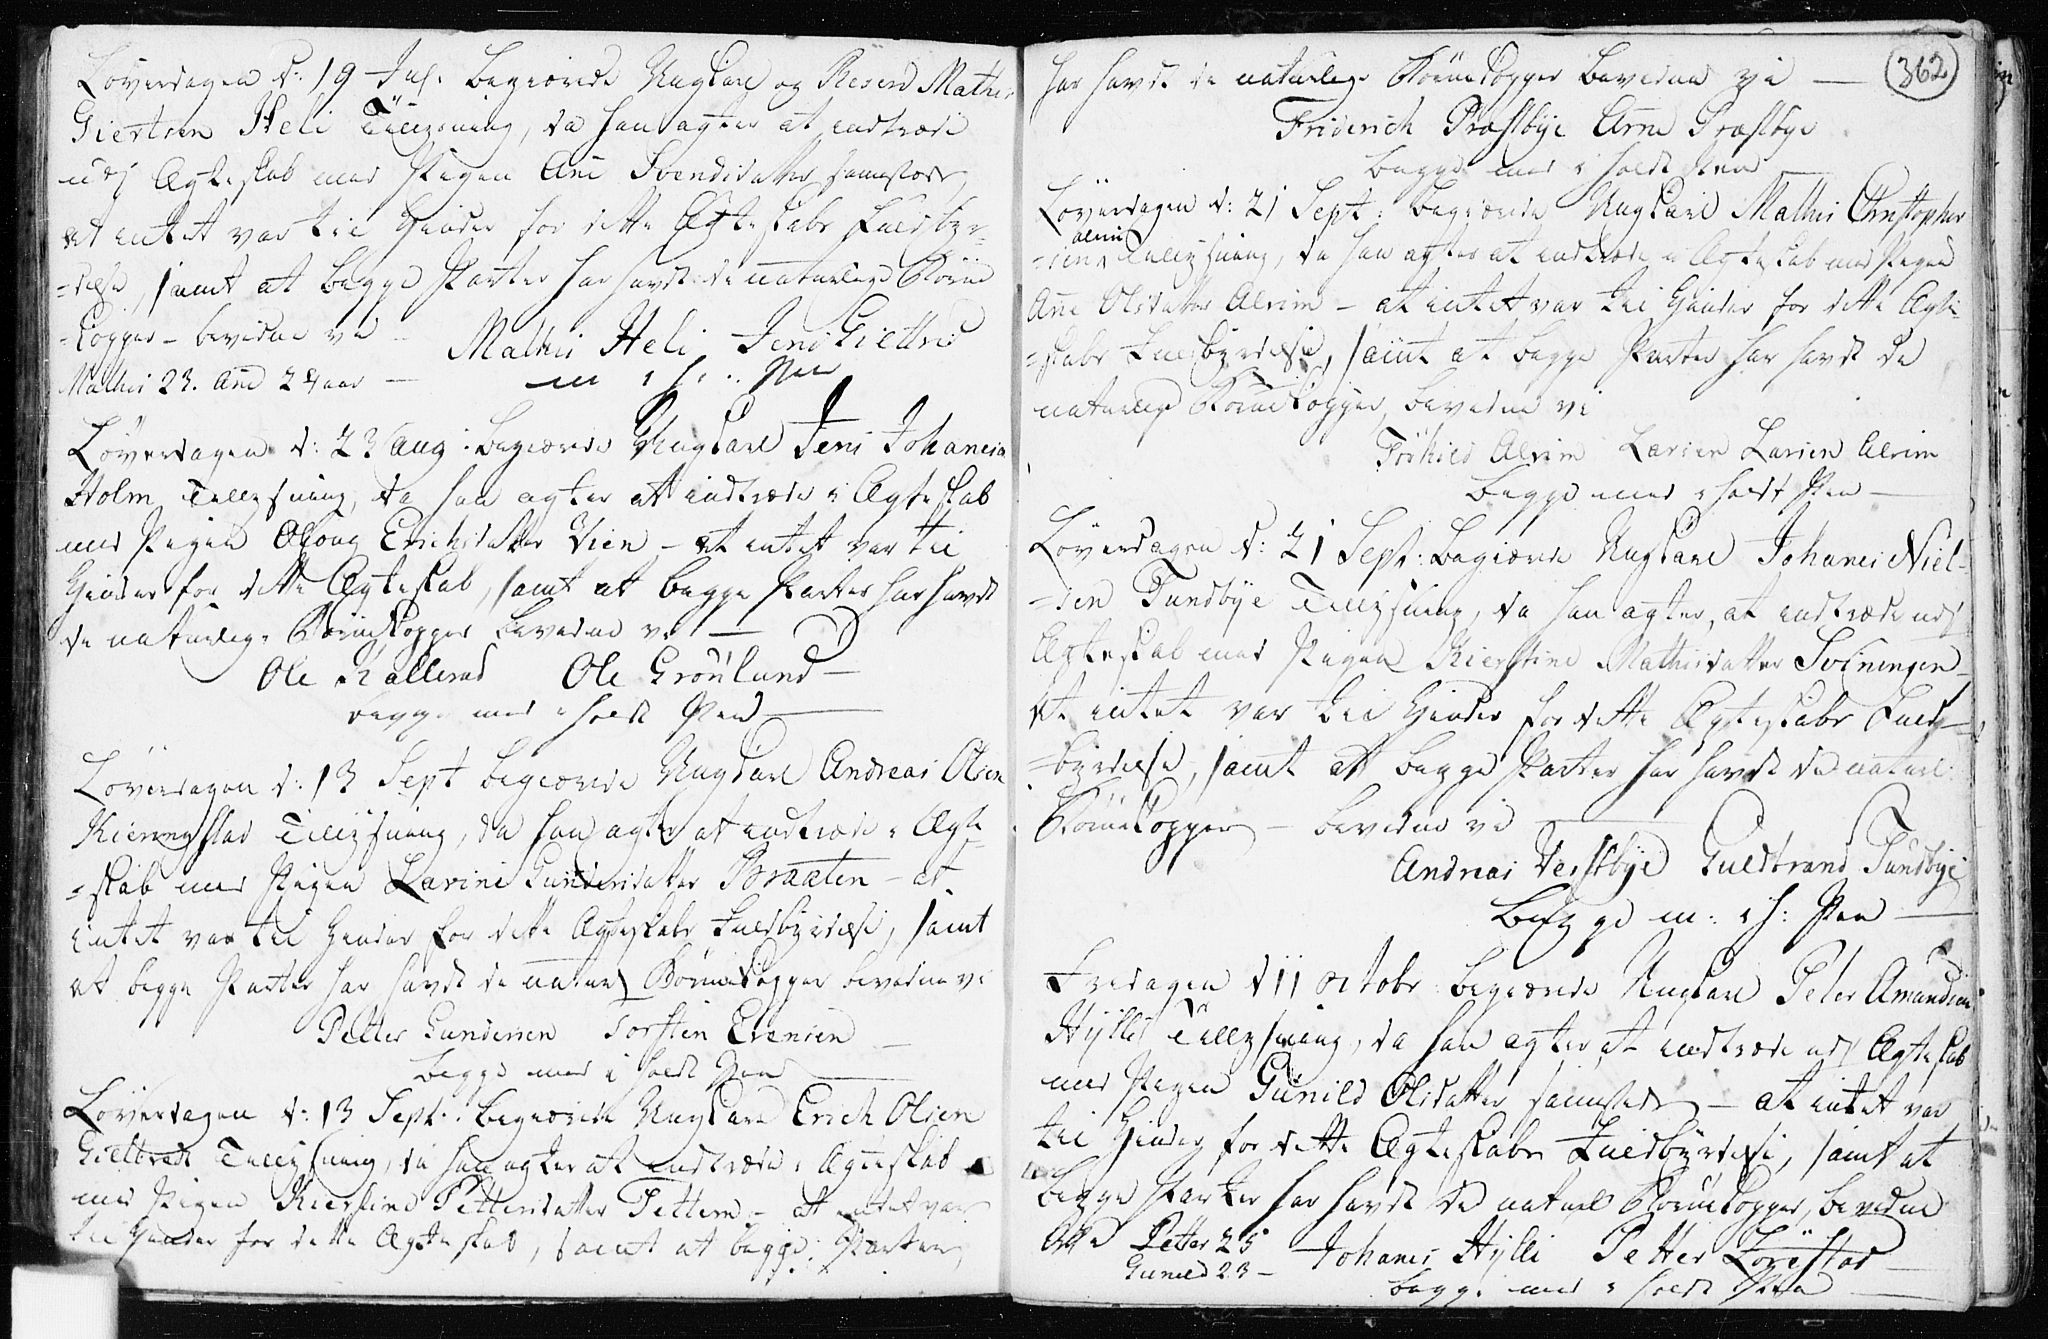 Løverdagen d: 19 Jul. begiærede Ungkarl og Reserv Mathis
Giertsen Heli Tillysning, da han agter at indtræde
udj Ægteskab med Pigen Ane Svendsdatter samestæds
at intet var til Hinder for dette Ægteskabs Fuldbyr=
=delse, samt at begge Parter har havdt de naturlige Børne
=kopper – bevidne vi –
Mathis Heli Jens Giettrud
Mathis 23. Ane 28 aar – m i h: Pen
Løverdagen d: 23 Aug: begiærede Ungkarl Jens Johanesen
Holm Tillysning, da han agter at indtræde i Ægteskab
med Pigen Oloug Erichsdatter Vien – at intet var til
Hinder for dette Ægteskab, samt at begge Parter har havdt
de naturlige Børnekopper bevidne vi –
Ole Kallerud Ole Grönlund –
begge med i holdt Pen
Løverdagen d: 13 Sept begiærede Ungkarl Andreas Olsen
Kiernsstad Tillysning, da han agter at indtræde i Ægte
=skab med Pigen Lavine Gundersdatter Braaten – at
intet var til Hinder for dette Ægteskabs Fuldbyrdelse, samt
at begge Parter har havdt de naturl Børnekopper bevidne vi
Petter Gundersen Torsten Evensen
begge med i holdt Pen
Løverdagen d: 13 Sept: begiærede Ungkarl Erich Olsen
Tillysning, da han agter at indtræde i Ægteskab
med Pigen Kierstine Pettersdatter Tettem – at intet var
til Hinder for dette Ægteskab, samt at begge Parter
362
har havdt de naturlige Børnekopper bevidne vi –
Friderich Præstbye Arne Præstbye
begge med i holdt Pen
Løverdagen d: 21 Sept: begiærede Ungkarl Mathis Christopher
Alrim
=sen Tillysning, da han agter at indtræde i Ægteskab med Pigen
Ane Olsdatter Alrim – at intet var til Hinder for dette Ægte
=skabs Fuldbyrdelse, samt at begge Parter har havdt de
naturlige Børnekopper, bevidne vi
Torkild Alrim Larsen Larsen Alrim
begge med i holdt Pen –
Løverdagen d: 21 Sept: begiærede Ungkarl Johanes Niel-
=sen Sundbye Tillysning, da han agter, at indtræde udj
Ægteskab med Pigen Kierstine Mathisdatter Solningen –
at intet var til Hinder for dette Ægteskabs Fuld-
=byrdelse, samt at begge Parter har havdt de naturl:
Børnekopper – bevidne vi –
Andreas Vestbye Guldbrand Sundbye
begge m: i h: Pen –
Fredagen d 11 Octobr begiærede Ungkarl Peter Amundsen
Hylli Tillysning, da han agter, at indtræde udj Ægteskab
med Pigen Gunild Olsdatter samestæds – at intet var
til Hinder for dette Ægteskabs Fuldbyrdelse, samt at
begge Parter har havdt de naturl Børnekopper, bevidne
Petter 25 Johanes Hylli Petter
Gunild 23 –
begge med i holdt Pen –